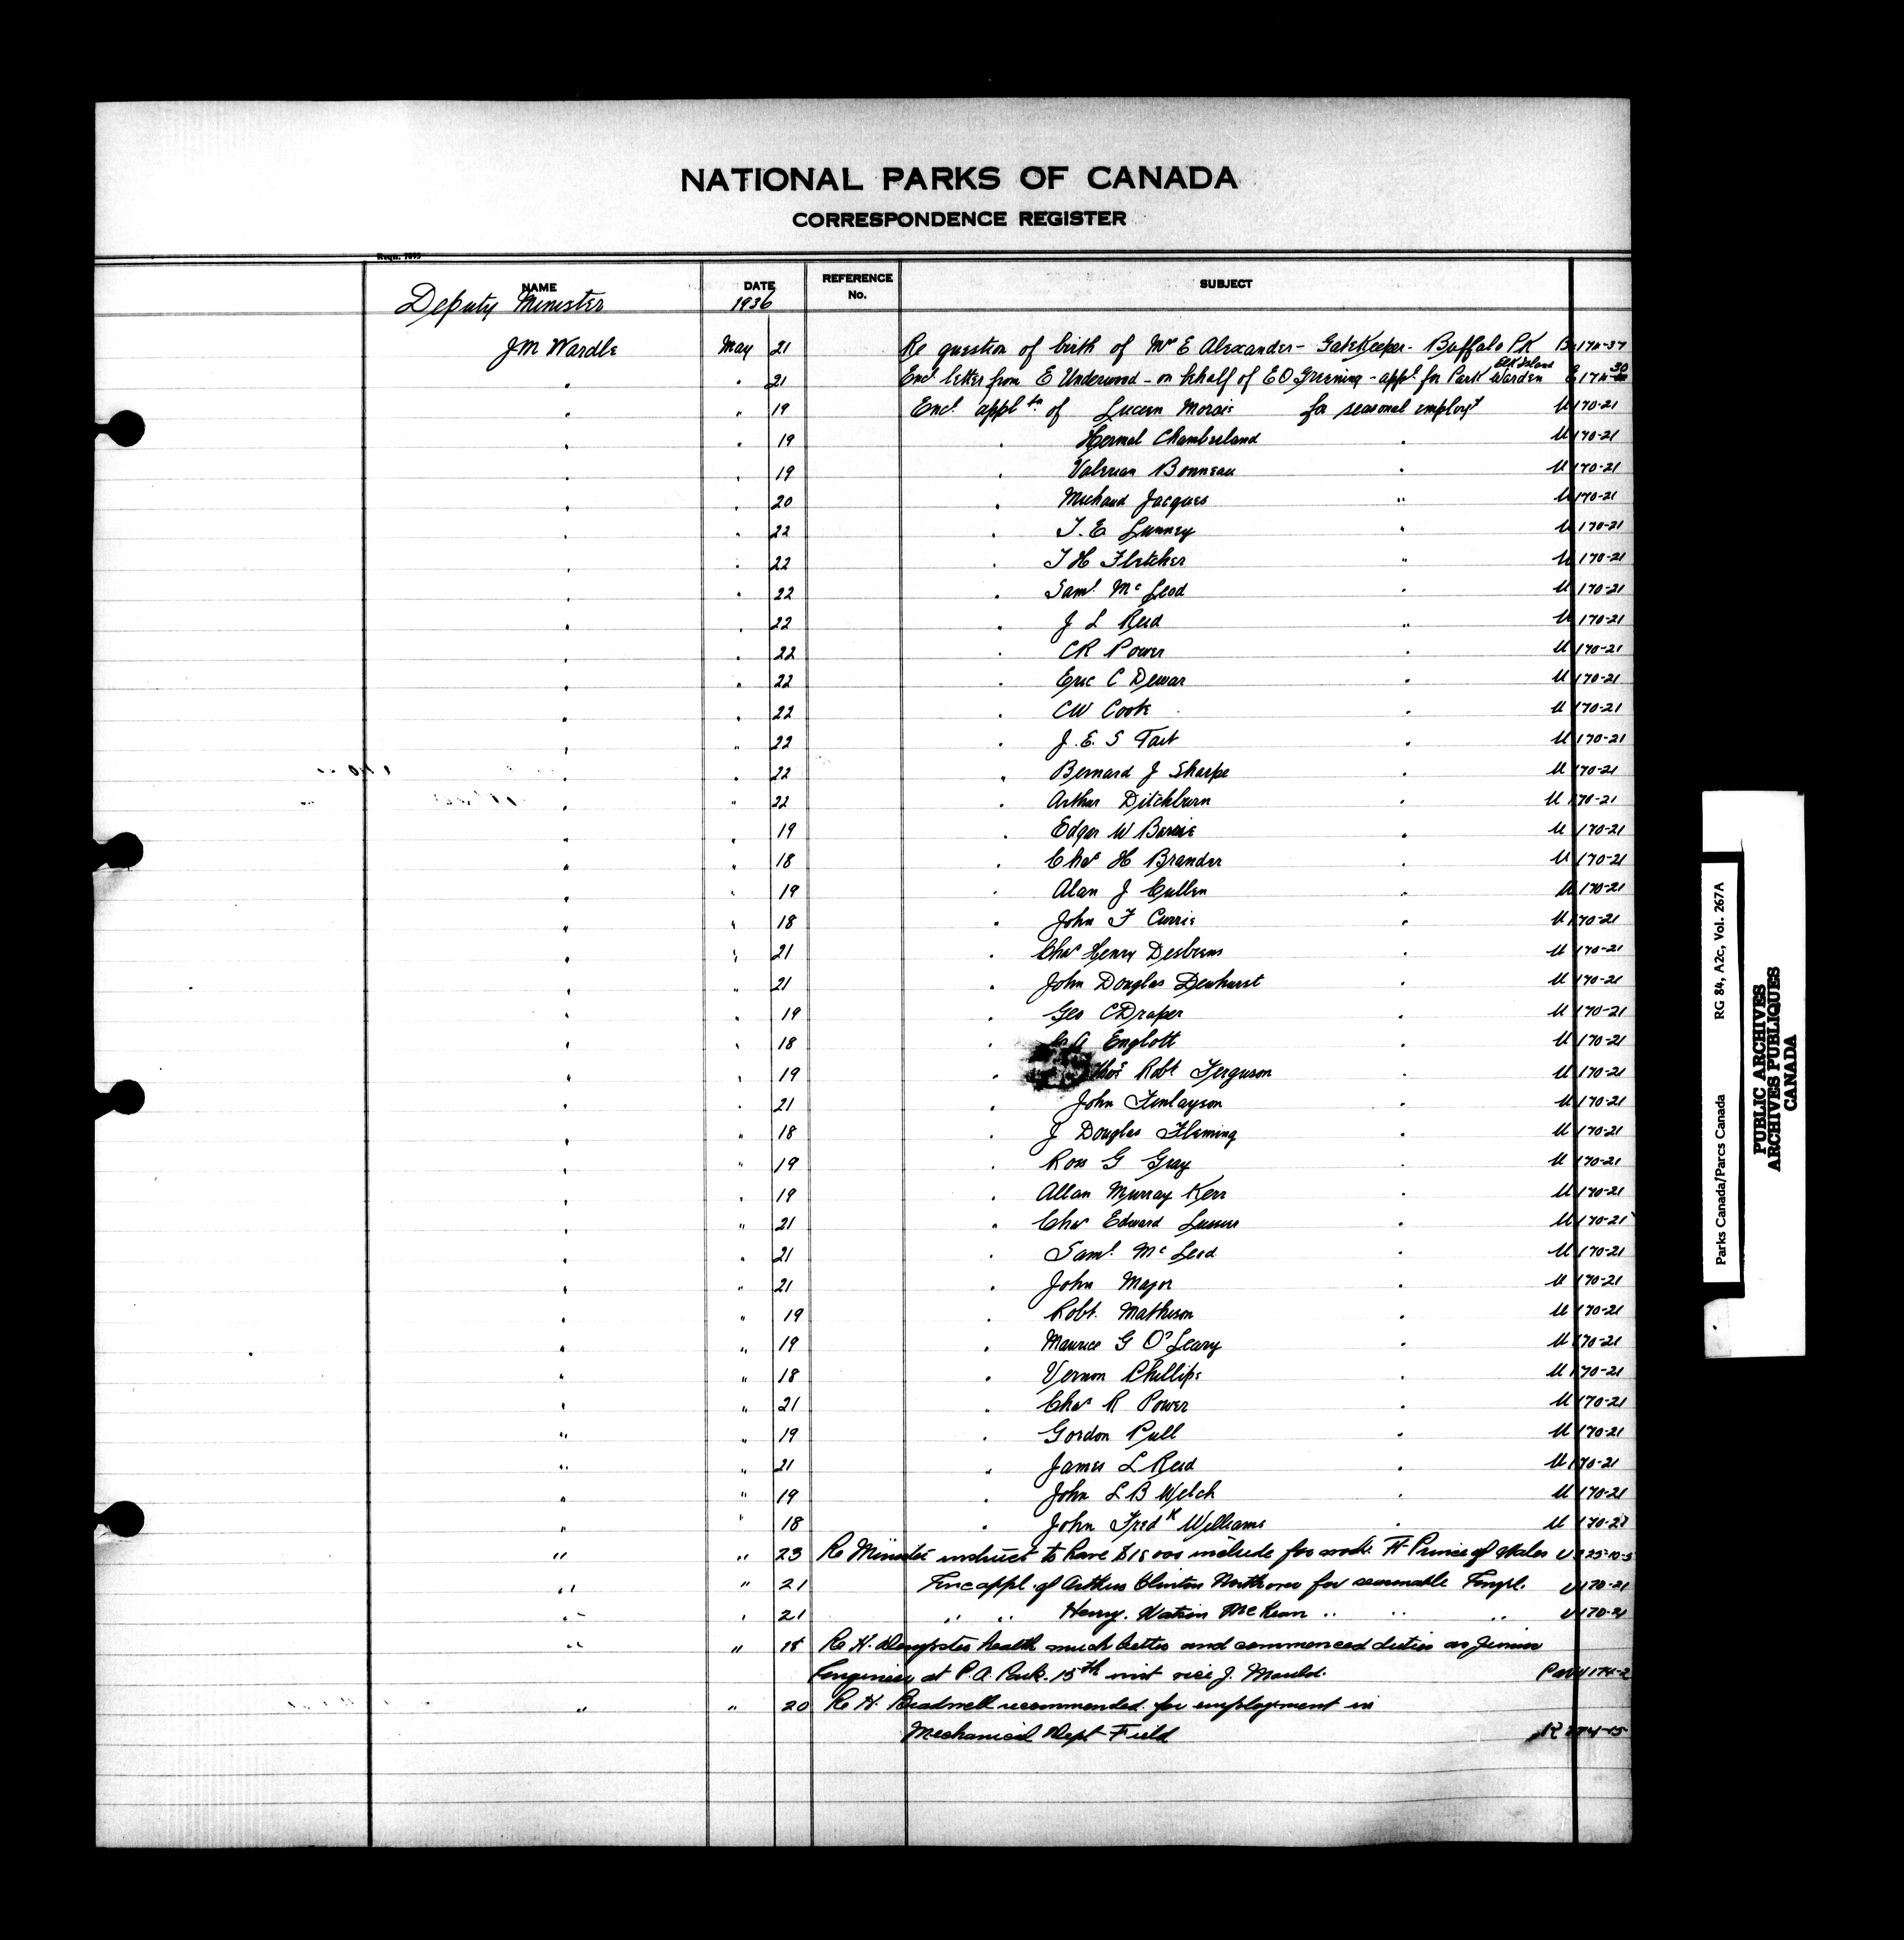 NATIONAL PARKS OF CANADA
CORRESPONDENCE REGISTER
Reqn. 7095
NAME DATE REFERENCE No. SUBJECT
Deputy Minister 1936
JM Wardle May 21 Re question of birth of Mrs E Alexander - GateKeeper - Buffalo PK Bu 174-37
" " 21 Encl letter from E Underwood - on behalf of EO Greening - appl for Park Warden Elk Island E 174-30
" " 19 Encl. appltn of Lucien Morais for seasonal employt U 170-21
" " 19 " Hormel Chamberland " U 170-21
" " 19 " Valerian Bonneau " U 170-21
" " 20 " Michaud Jacques " U 170-21
" " 22 " T.E. Lunney " U 170-21
" " 22 " T H Fletcher " U 170-21
" " 22 " Saml Mc Leod " U 170-21
" " 22 " J L Reid " U 170-21
" " 22 " CR Power " U 170-21
" " 22 " Eric C Dewar " U 170-21
" " 22 " CW Cook " U 170-21
" " 22 " J.E.S Tait " U 170-21
" " 22 " Bernard J Sharpe " U 170-21
" " 22 " Arthur Ditchburn " U 170-21
" " 19 " Edgar W " U 170-21
" " 18 " Chas H Brander " U 170-21
" " 19 " Alan J Cullen " U 170-21
" " 18 " John F Currie " U 170-21
" " 21 " Chas Henry " U 170-21
" " 21 " John Douglas Dewhurst " U 170-21
" " 19 " Geo C Draper " U 170-21
" " 18 " A Englott " U 170-21
" " 19 " Thos Robt Ferguson " U 170-21
" " 21 " John Finlayson " U 170-21
" " 18 " J Douglas Fleming " U 170-21
" " 19 " Ross G Gray " U 170-21
" " 19 " Allan Murray Kerr " U 170-21
" " 21 " Chas Edward " U 170-21
" " 21 " Saml Mc Leod " U 170-21
" " 21 " John Major " U 170-21
" " 19 " Robt. Matheson " U 170-21
" " 19 " Maurice G O'Leary " U 170-21
" " 18 " Vernon Phillips " U 170-21
" " 21 " Chas R Power " U 170-21
" " 19 " Gordon Pull " U 170-21
" " 21 " James L Reid " U 170-21
" " 19 " John L B Welch " U 170-21
" " 18 " John Fredk Williams " U 170-21
" " 23 Re Minister instruct to have include for work Ft Prince of Wales U
" " 21 Enc appl. of Arthur Clinton Northover for seasonable Empl. U 170-21
" " 21 " " Henry. Watson McKean " " " U 170-21
" " 18 Re H. Dempster health much better and commenced duties as Junior
Engineer at P.A. Park. 15th inst vice J. 174-2
" " 20 Re H. Bradwell recommended for employment in
Mechanical Dept Field K 174-15
Parks Canada/Parcs Canada RG 84, A2c, Vol. 267A
PUBLIC ARCHIVES
ARCHIVES PUBLIQUES
CANADA